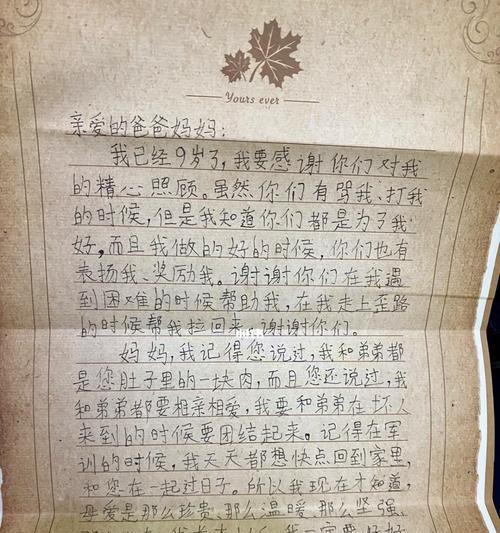 Yours ever
亲爱的爸爸妈妈：
我已经9岁了，我要感谢你们对我
的精心照顾。虽然你们有骂我、打我
的时候，但是我知道你们都是为了我
好，而且我做的好的时候，你们也有
表扬我、奖励我。谢谢你们在我遇
到困难的时候帮助我，在我走上歪路
的时候帮我拉回来，谢谢你们。
妈妈，我记得您说过，我和弟弟都
是您肚子里的一块肉，而且您还说过，我
和弟弟都要相亲相爱，我要和弟弟在坏人
来到的时候要团结起来。记得在军
训的时候，我天天都想快点回到家里，
和您在一起过日子。所以我现在才知道，
母爱是那么珍贵、那么温暖、那么坚强、
我一定要好好